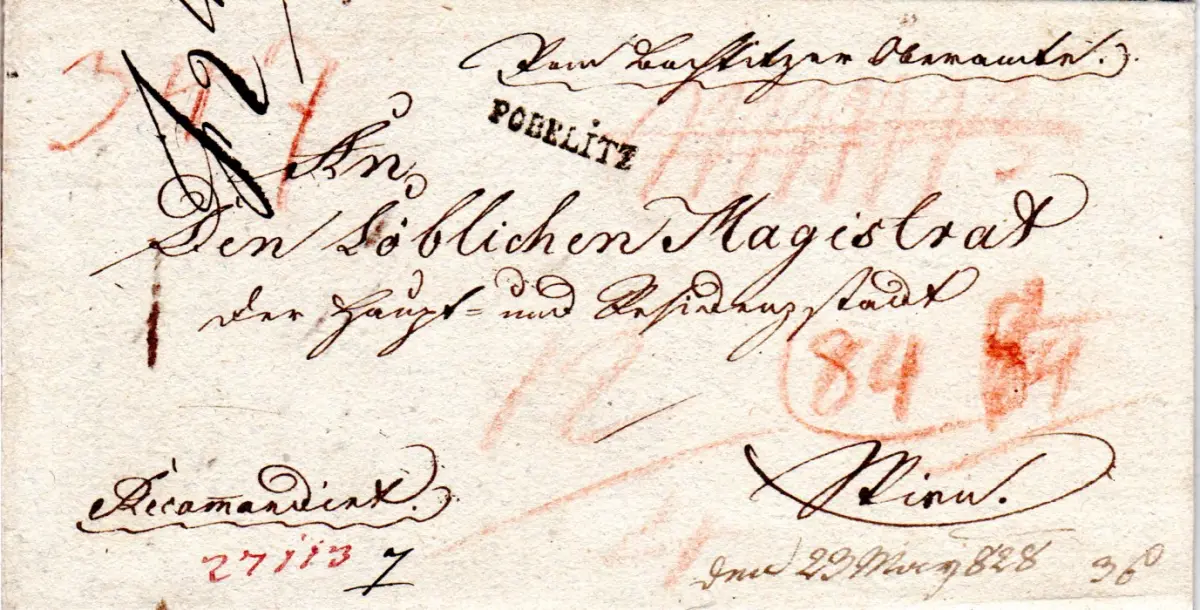 Vom Oberamte.
347
POHELITZ
An
Den Löblichen Magistrat
der Haupt= und Residenzstadt
12
84
Wien.
Recomandirt.
27113 7
den 23 May 828 36